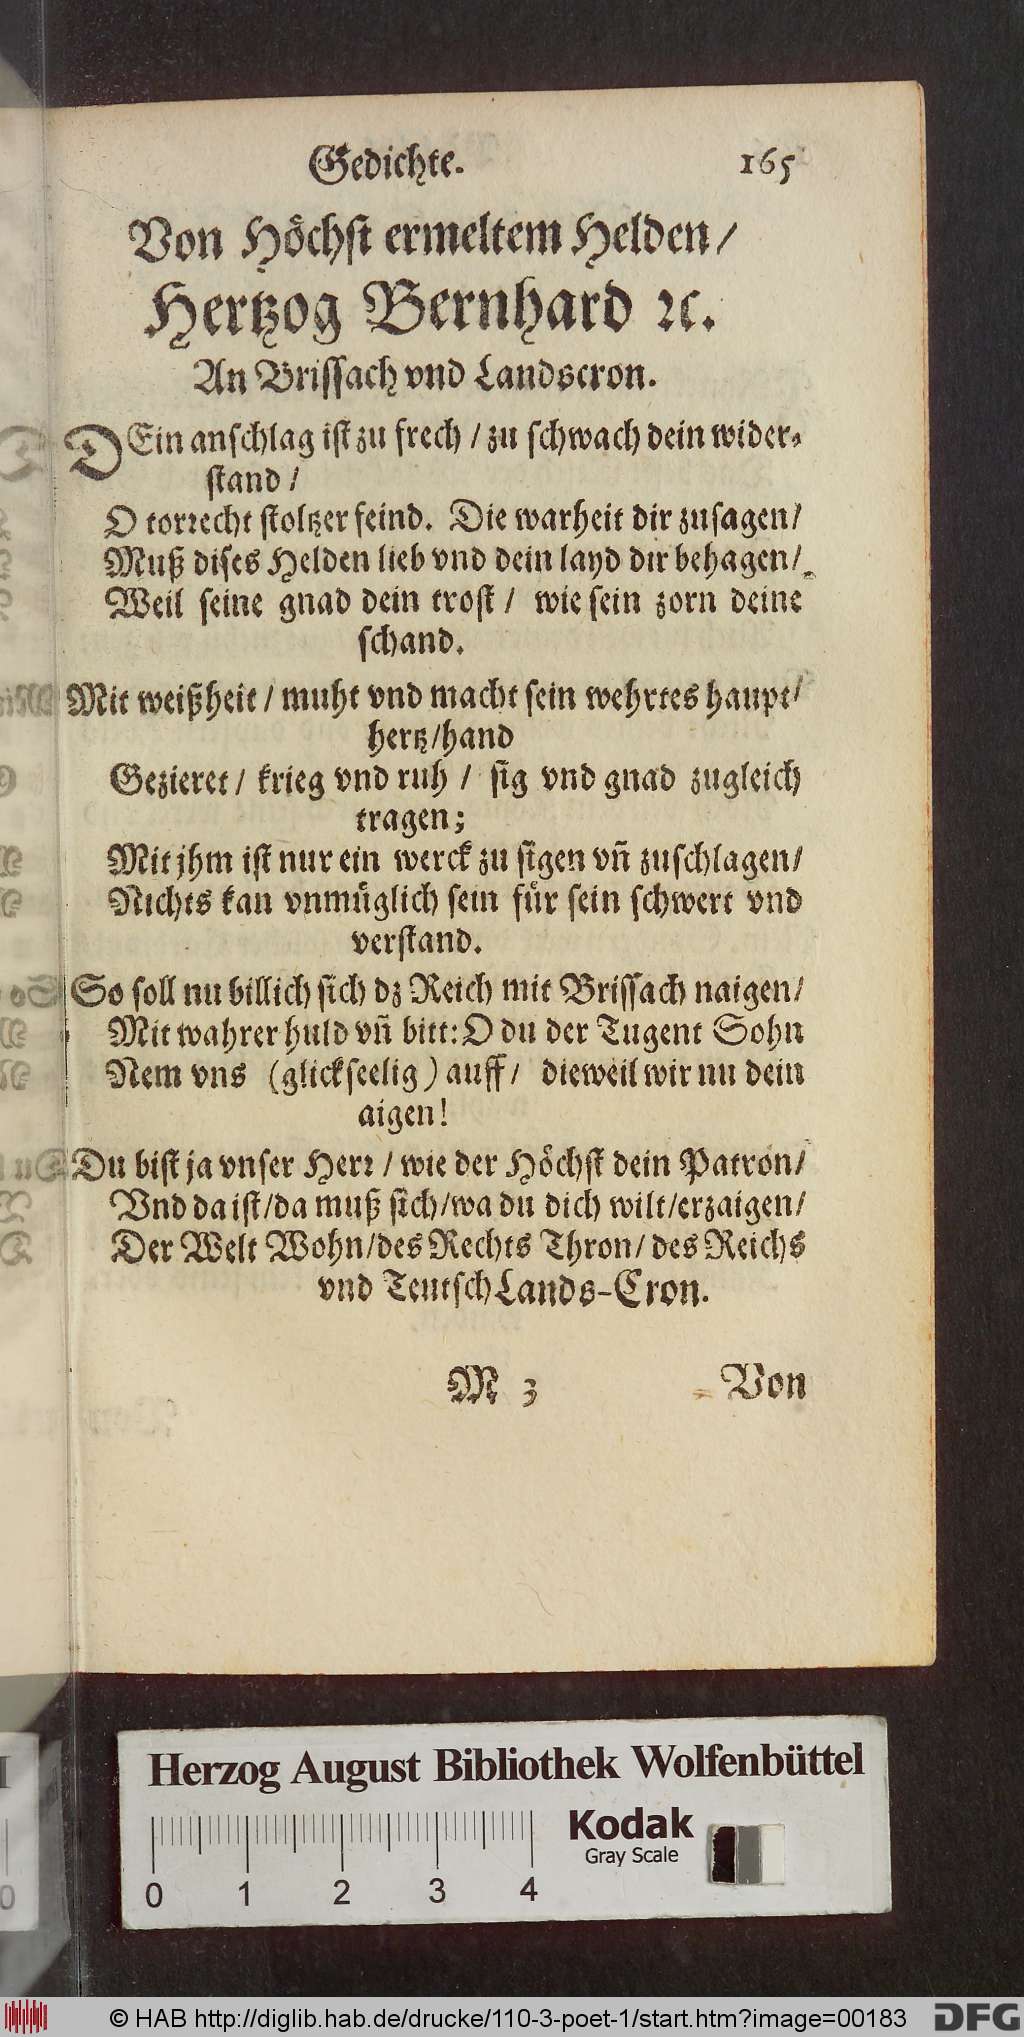 Gedichte. 165
Von Höchst ermeltem Helden/
Hertzog Bernhard ꝛc.
An Brissach vnd Landscron.
DEin anschlag ist zu frech / zu schwach dein wider⸗
stand /
O torrecht stoltzer feind. Die warheit dir zusagen/
Muß dises Helden lieb vnd dein layd dir behagen/
Weil seine gnad dein trost / wie sein zorn deine
schand.
Mit weißheit / muht vnd macht sein wehrtes haupt/
hertz/hand
Gezieret / krieg vnd ruh / sig vnd gnad zugleich
tragen;
Mit jhm ist nur ein werck zu sigen vn̄ zuschlagen/
Nichts kan vnmüglich sein für sein schwert vnd
verstand.
So soll nu billich sich dz Reich mit Brissach naigen/
Mit wahrer huld vn̄ bitt: O du der Tugent Sohn
Nem vns (glickseelig) auff / dieweil wir nu dein
aigen!
Du bist ja vnser Herr / wie der Höchst dein Patron/
Vnd da ist/da muß sich/wa du dich wilt/erzaigen/
Der Welt Wohn/des Rechts Thron/des Reichs
vnd Teutsch Lands-Cron.
M 3 Von
Herzog August Bibliothek Wolfenbüttel
Kodak
Gray Scale
0 1 2 3 4
© HAB http://diglib.hab.de/drucke/110-3-poet-1/start.htm?image=00183 DFG